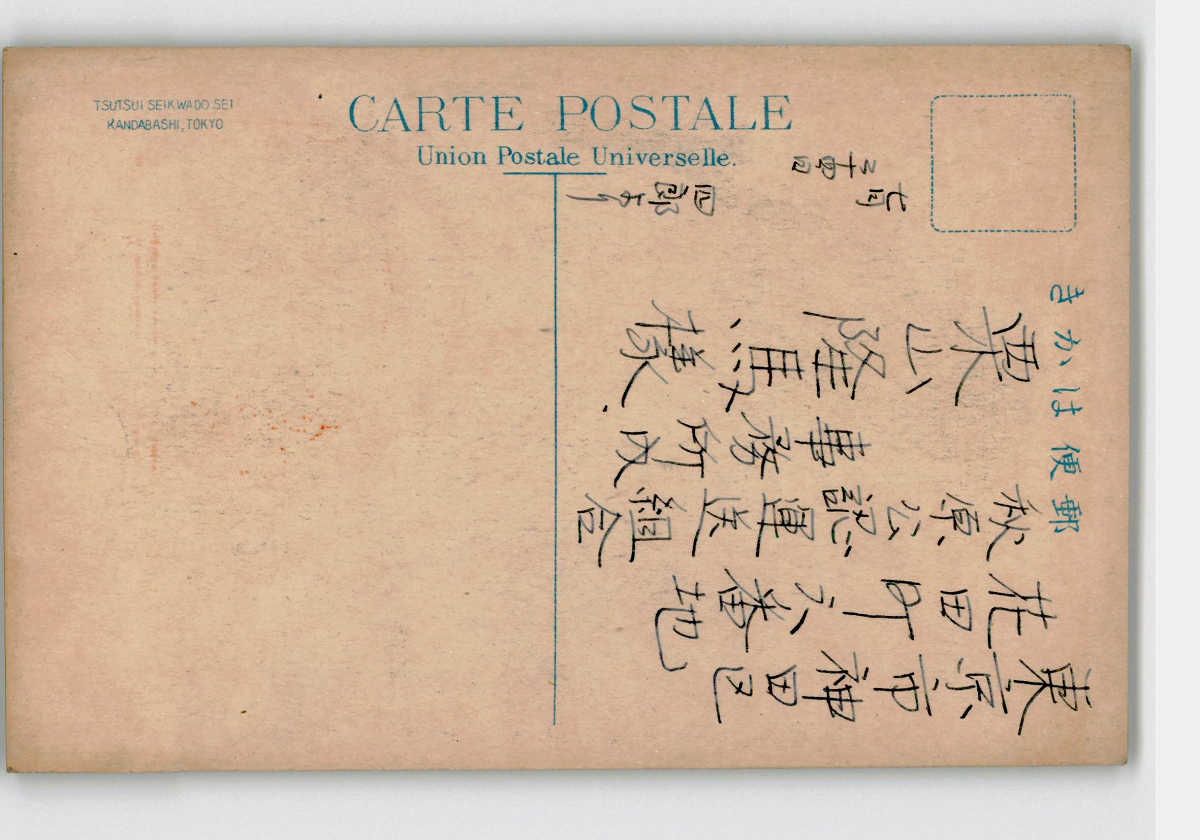 TSUTSUI SEIKWADO SEI
KANDABASHI, TOKYO
CARTE POSTALE
Union Postale Universelle.
郵便はかき
東京市神田区
花田町六番地
秋原公認運送組合
事務所内
栗山隆馬様
七月
二十四日
四郎より